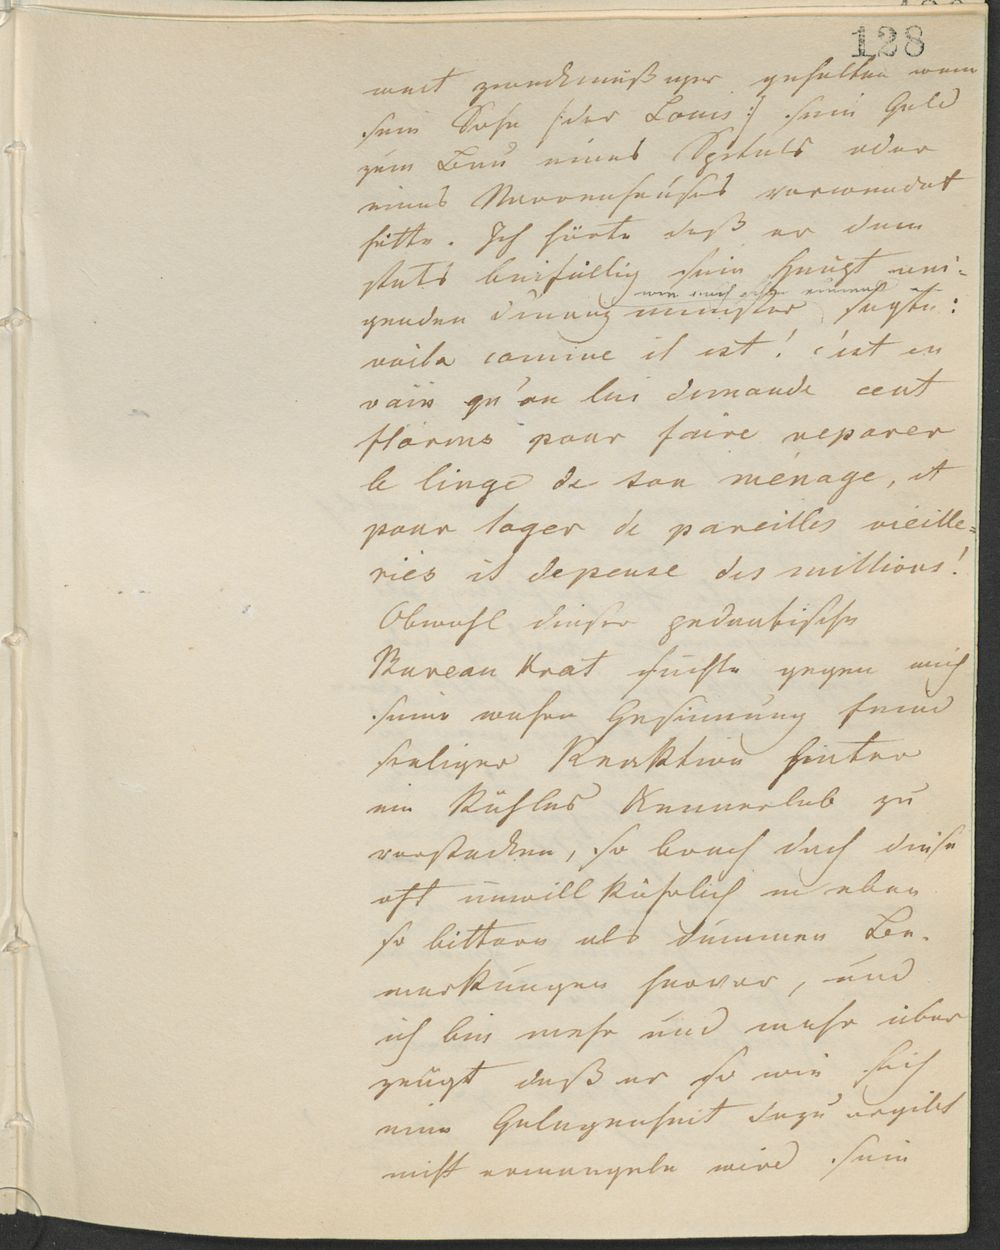 128
weit zweckmäßiger gehalten wenn
sein Sohn [: der Louis :] sein Geld
zum Bau eines Spitals oder
eines Narrenhauses verwendet
hätte. Ich hörte daß er dem
stets beifällig sein Haupt nei=
genden Finanzminister sagte:
voila comme il est! c'est en
vain qu'on lui demande cent
florins pour faire reparer
le linge de son ménage, et
pour loger de pareilles vieille=
ries il depense des millions!
Obwohl dieser pedantische
Bureaukrat suchte gegen mich
seine wahre Gesinnung feind
seliger Reaktion hinter
ein kühles Kennerlob zu
verstecken, so brach doch diese
oft unwillkührlich in eben
so bittern als dummen Be-
merkungen hervor, und
ich bin mehr und mehr über
zeugt daß er so wie sich
eine Gelegenheit dazu ergibt
nicht ermangeln wird sein